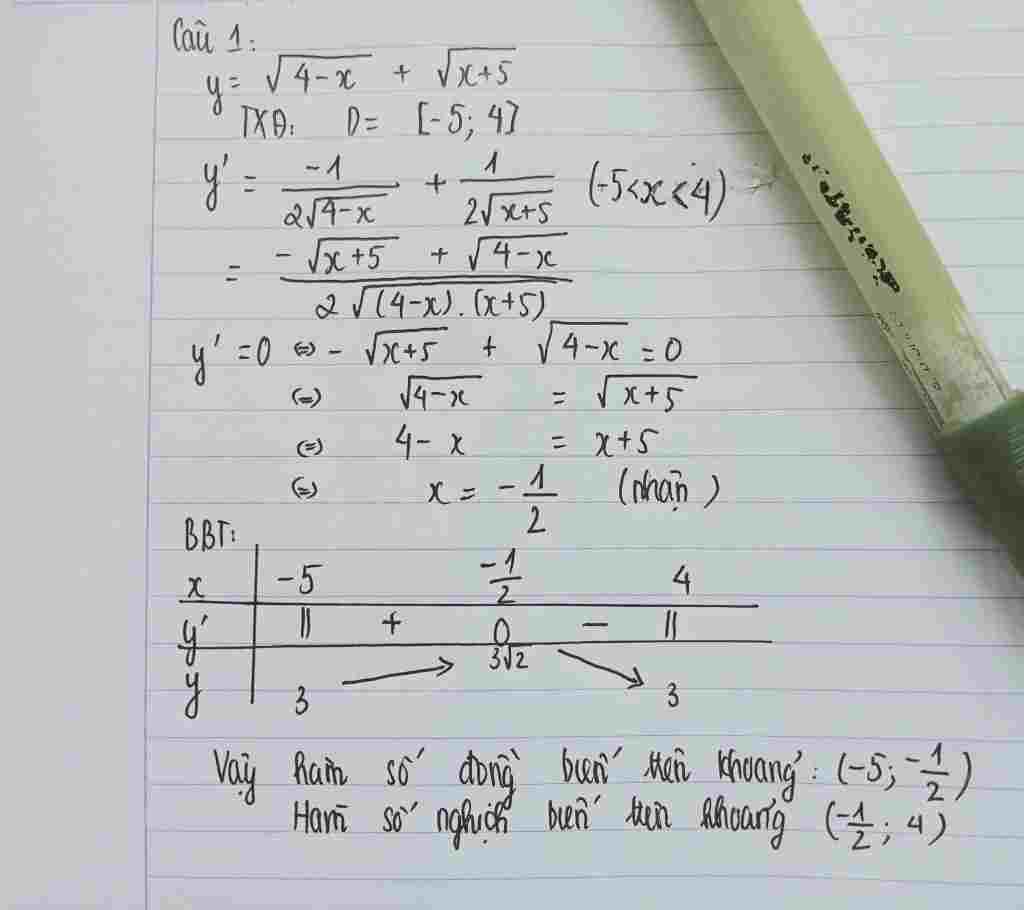 Câu 1:
y = √(4-x) + √(x+5)
TXĐ: D = [-5; 4]
y' = -1/(2√(4-x)) + 1/(2√(x+5)) (-5<x<4)
= (-√(x+5) + √(4-x))/(2√((4-x).(x+5)))
y' = 0 ⇔ -√(x+5) + √(4-x) = 0
⇔ √(4-x) = √(x+5)
⇔ 4-x = x+5
⇔ x = -1/2 (nhận)
BBT:
x -5 -1/2 4
y' || + 0 - ||
y 3 ↗ 3√2 ↘ 3
Vậy hàm số đồng biến trên khoảng: (-5; -1/2)
Hàm số nghịch biến trên khoảng (-1/2; 4)